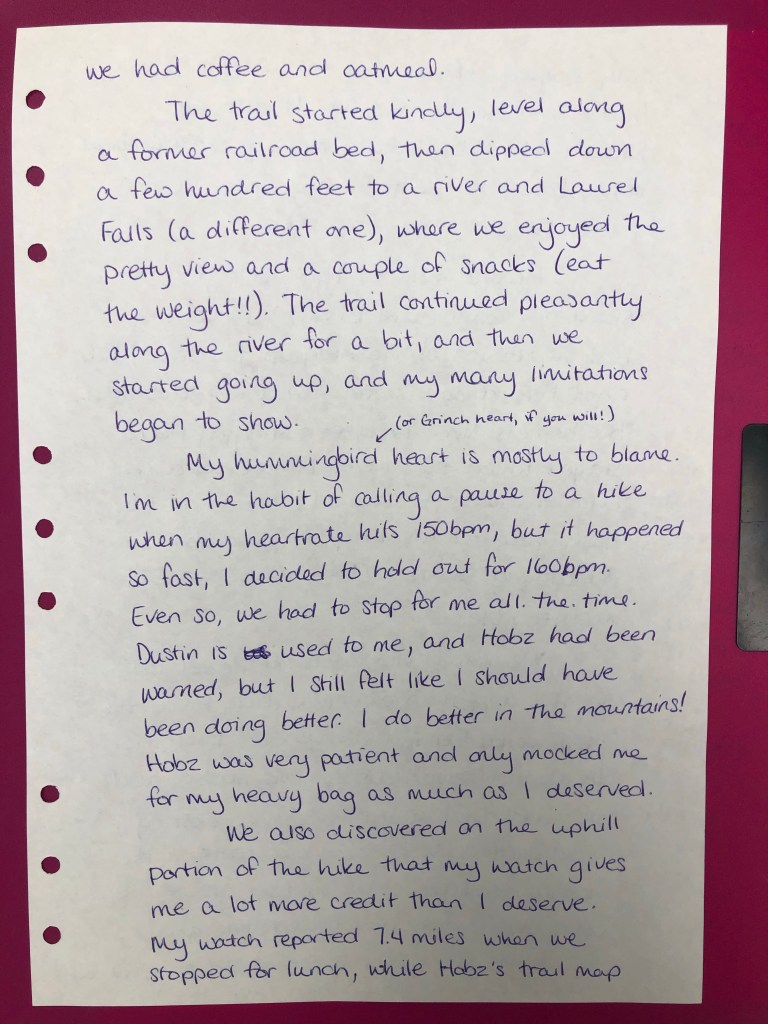 we had coffee and oatmeal.
The trail started kindly, level along
a former railroad bed, then dipped down
a few hundred feet to a river and Laurel
Falls (a different one), where we enjoyed the
pretty view and a couple of snacks (eat
the weight!!). The trail continued pleasantly
along the river for a bit, and then we
started going up, and my many limitations
began to show.
(or Grinch heart, if you will!)
My hummingbird heart is mostly to blame.
I'm in the habit of calling a pause to a hike
when my heartrate hits 150bpm, but it happened
so fast, I decided to hold out for 160bpm.
Even so, we had to stop for me all. the. time.
Dustin is used to me, and Hobz had been
warned, but I still felt like I should have
been doing better. I do better in the mountains!
Hobz was very patient and only mocked me
for my heavy bag as much as I deserved.
We also discovered on the uphill
portion of the hike that my watch gives
me a lot more credit than I deserve.
My watch reported 7.4 miles when we
stopped for lunch, while Hobz's trail map